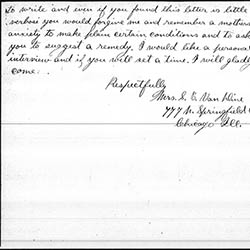 to write and even if you found this letter is little
verbose you would forgive me and remember a mothers
anxiety to make plain certain conditions and to ask
you to suggest a remedy. I would like a personal
interview and if you will set a time. I will gladly
come.
Respectfully
Mrs. S. E. Van Kline
777 N. Springfield
Chicago Ill.